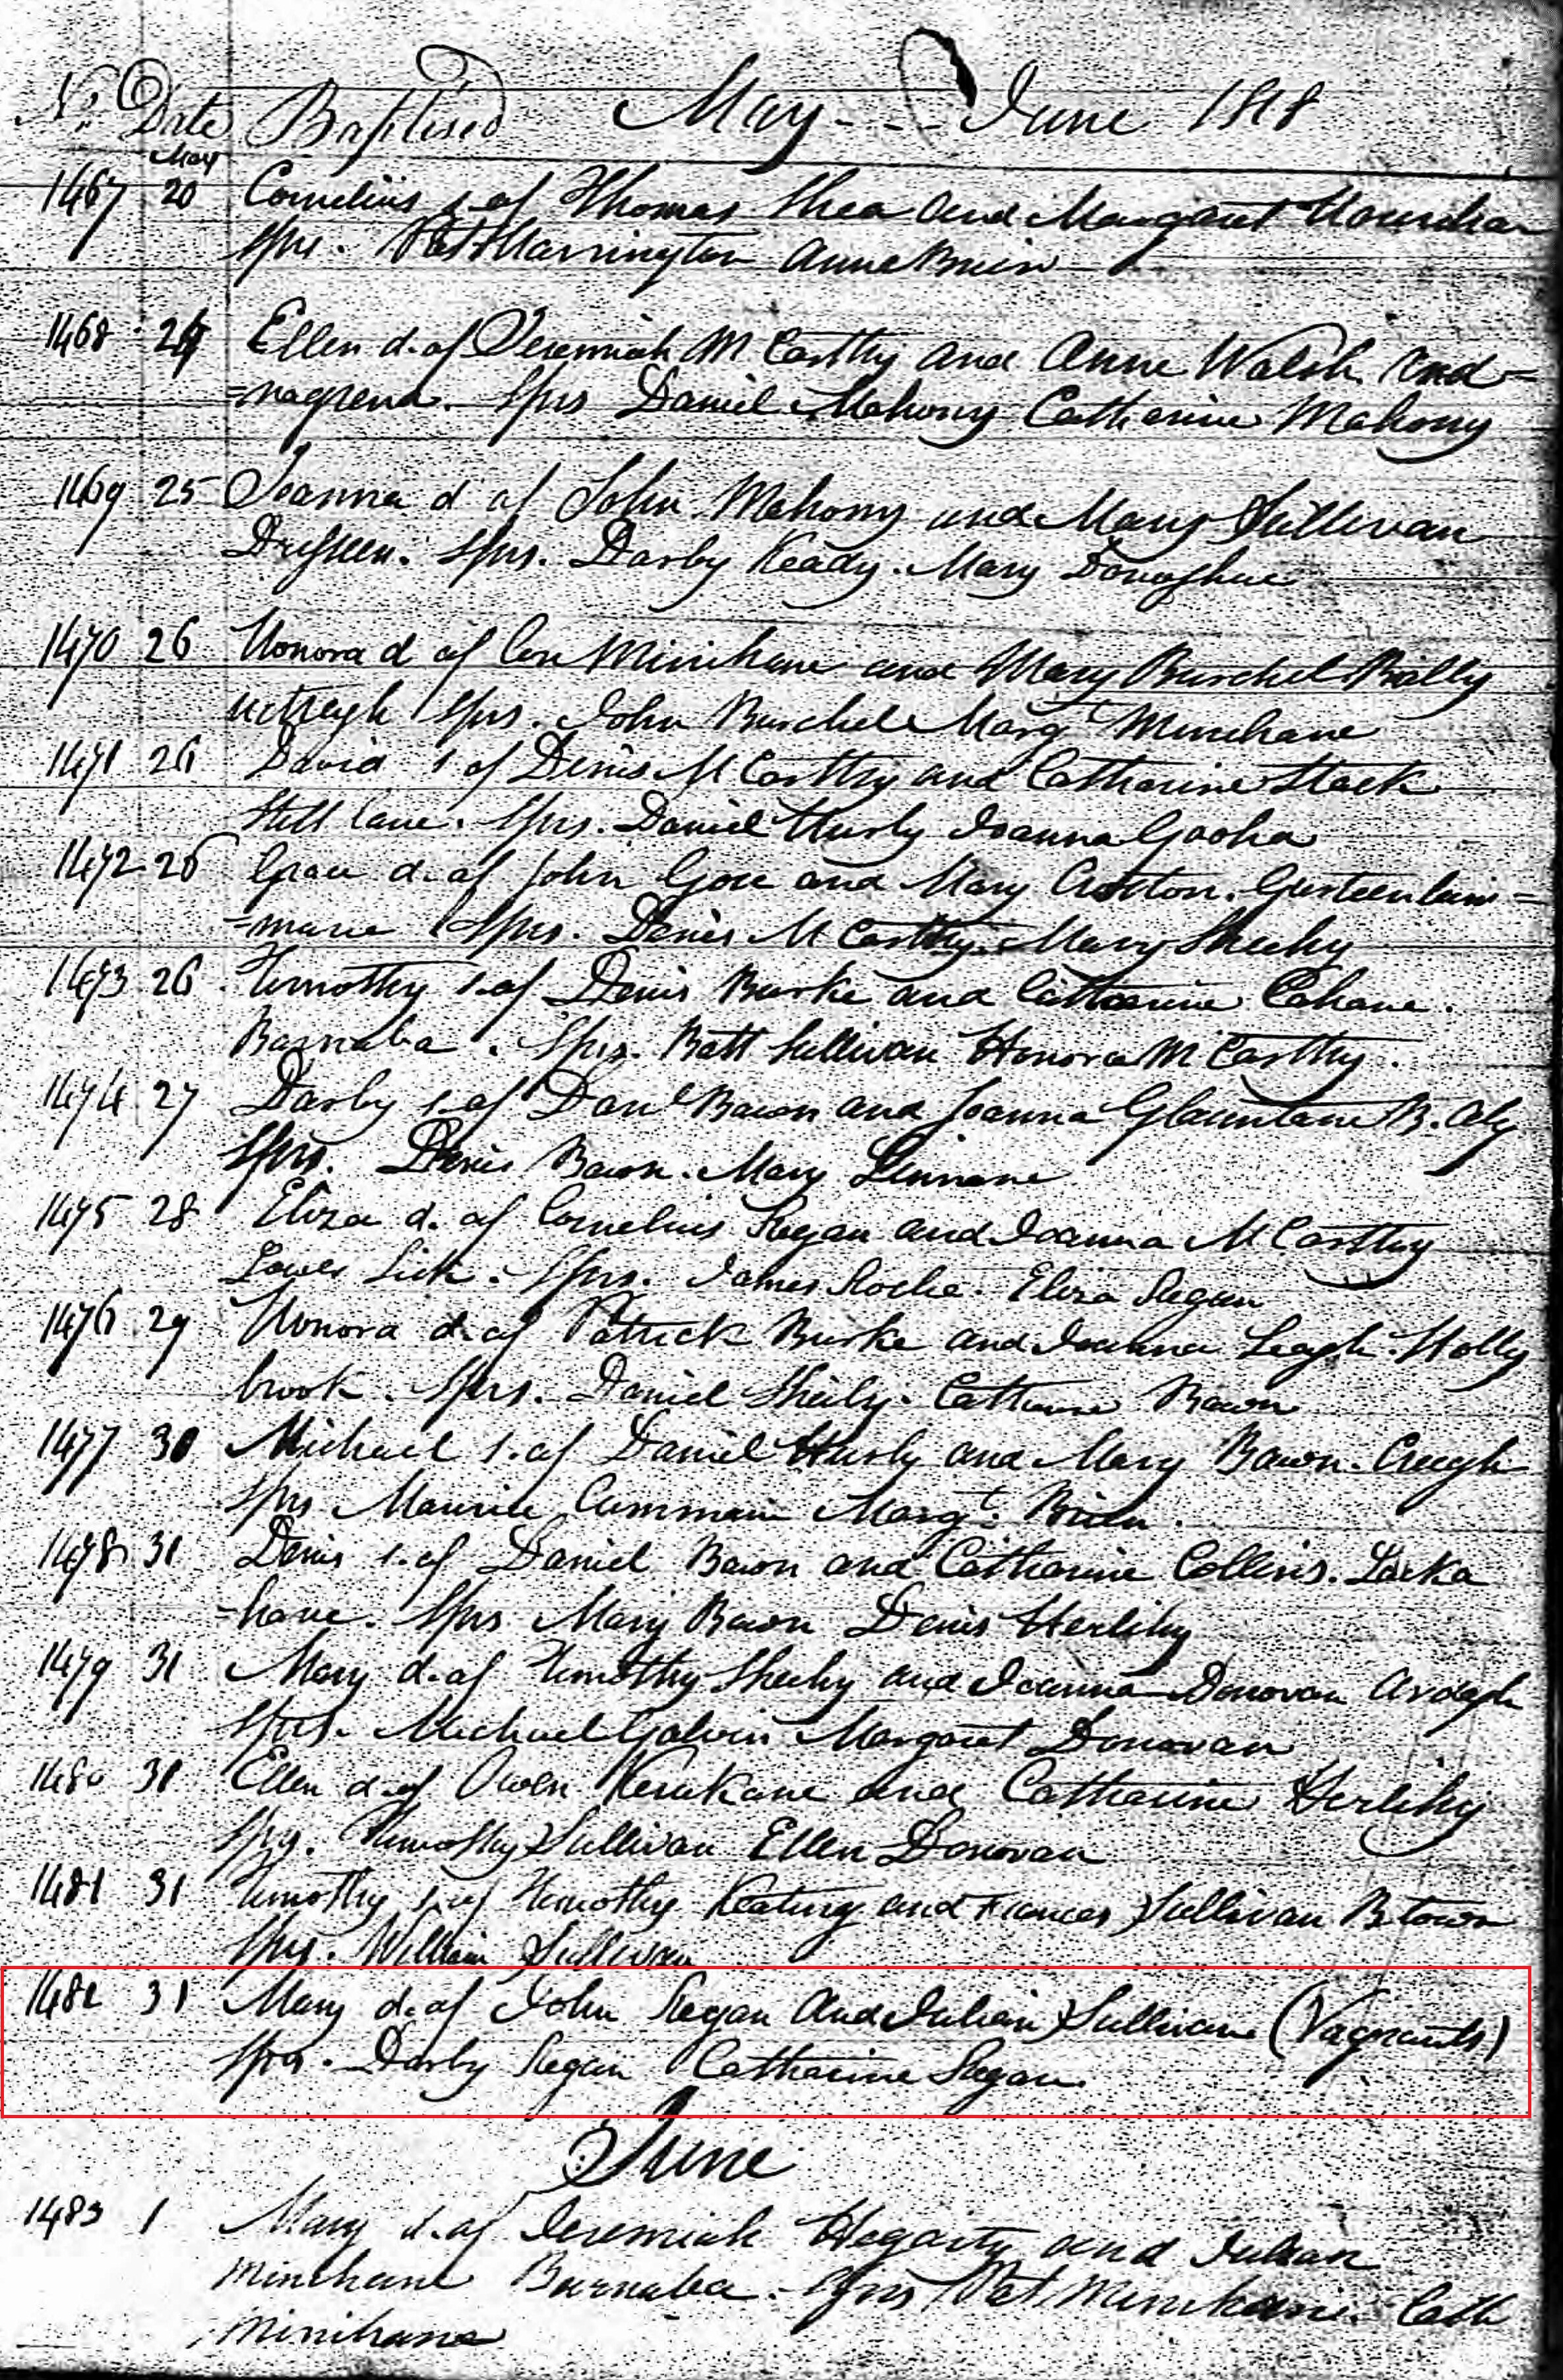 No. Date Baptised May - - - June 1818
May
1467 20 Cornelius s. of Thomas Shea and Margaret
Sprs. Pat Harrington Anne Brien
1468 24 Ellen d. of Jeremiah McCarthy and Anne Walsh Knd=
=nagrena. Sprs Daniel Mahony Catharine Mahony
1469 25 Joanna d of John Mahony and Mary Sullivan
Sprs. Darby Keady. Mary Donoghue
1470 26 Honora d of Con Minihane and Mary Burchel Bally
Sprs. John Burchel Margt Minihane
1471 26 David s of Denis McCarthy and Catharine Stack
Still lane. Sprs. Daniel Hurly Joanna
1472 26 Grace d. of John Goee and Mary Crofton.
=marue Sprs. Denis McCarthy. Mary Sheehy
1473 26 Timothy s. of Denis Burke and Catharine Cahane.
Barnaba. Sprs. Batt Sullivan Honora McCarthy.
1474 27 Darby s. of Danl Bawn and Joanna Glauntane
Sprs. Denis Bawn. Mary Linnane
1475 28 Eliza d. of Cornelius Regan and Joanna McCarthy
Lower Lick. Sprs. James Roche. Eliza Regan
1476 29 Honora d. of Patrick Burke and Joanna Leagh. Holly
brook. Sprs. Daniel Sheily. Catharine Bawn
1477 30 Michael s. of Daniel Hurly and Mary Bawn. Creagh
Sprs Maurice Cummain Margt. Brien.
1478 31 Denis s. of Daniel Bawn and Catharine Collins. Lacka
=hane. Sprs Mary Bawn Denis Herlihy
1479 31 Mary d. of Timothy Sheehy and Joanna Donovan Ardagh
Sprs. Michael Galvin Margaret Donovan
1480 31 Ellen d. of Owen Kerukane and Catharine Herlihy
Sprs. Timothy Sullivan Ellen Donovan
1481 31 Timothy s. of Timothy Keating and Frances Sullivan Btown
Sprs. William Sullivan
1482 31 Mary d. of John Regan and Julian Sullivan (Vagrants)
Sprs. Darby Regan Catharine Regan.
June
1483 1 Mary d. of Jeremiah Hegarty and Julian
Minihane Barnaba. Sprs Pat Minihane. Cath
Minihane